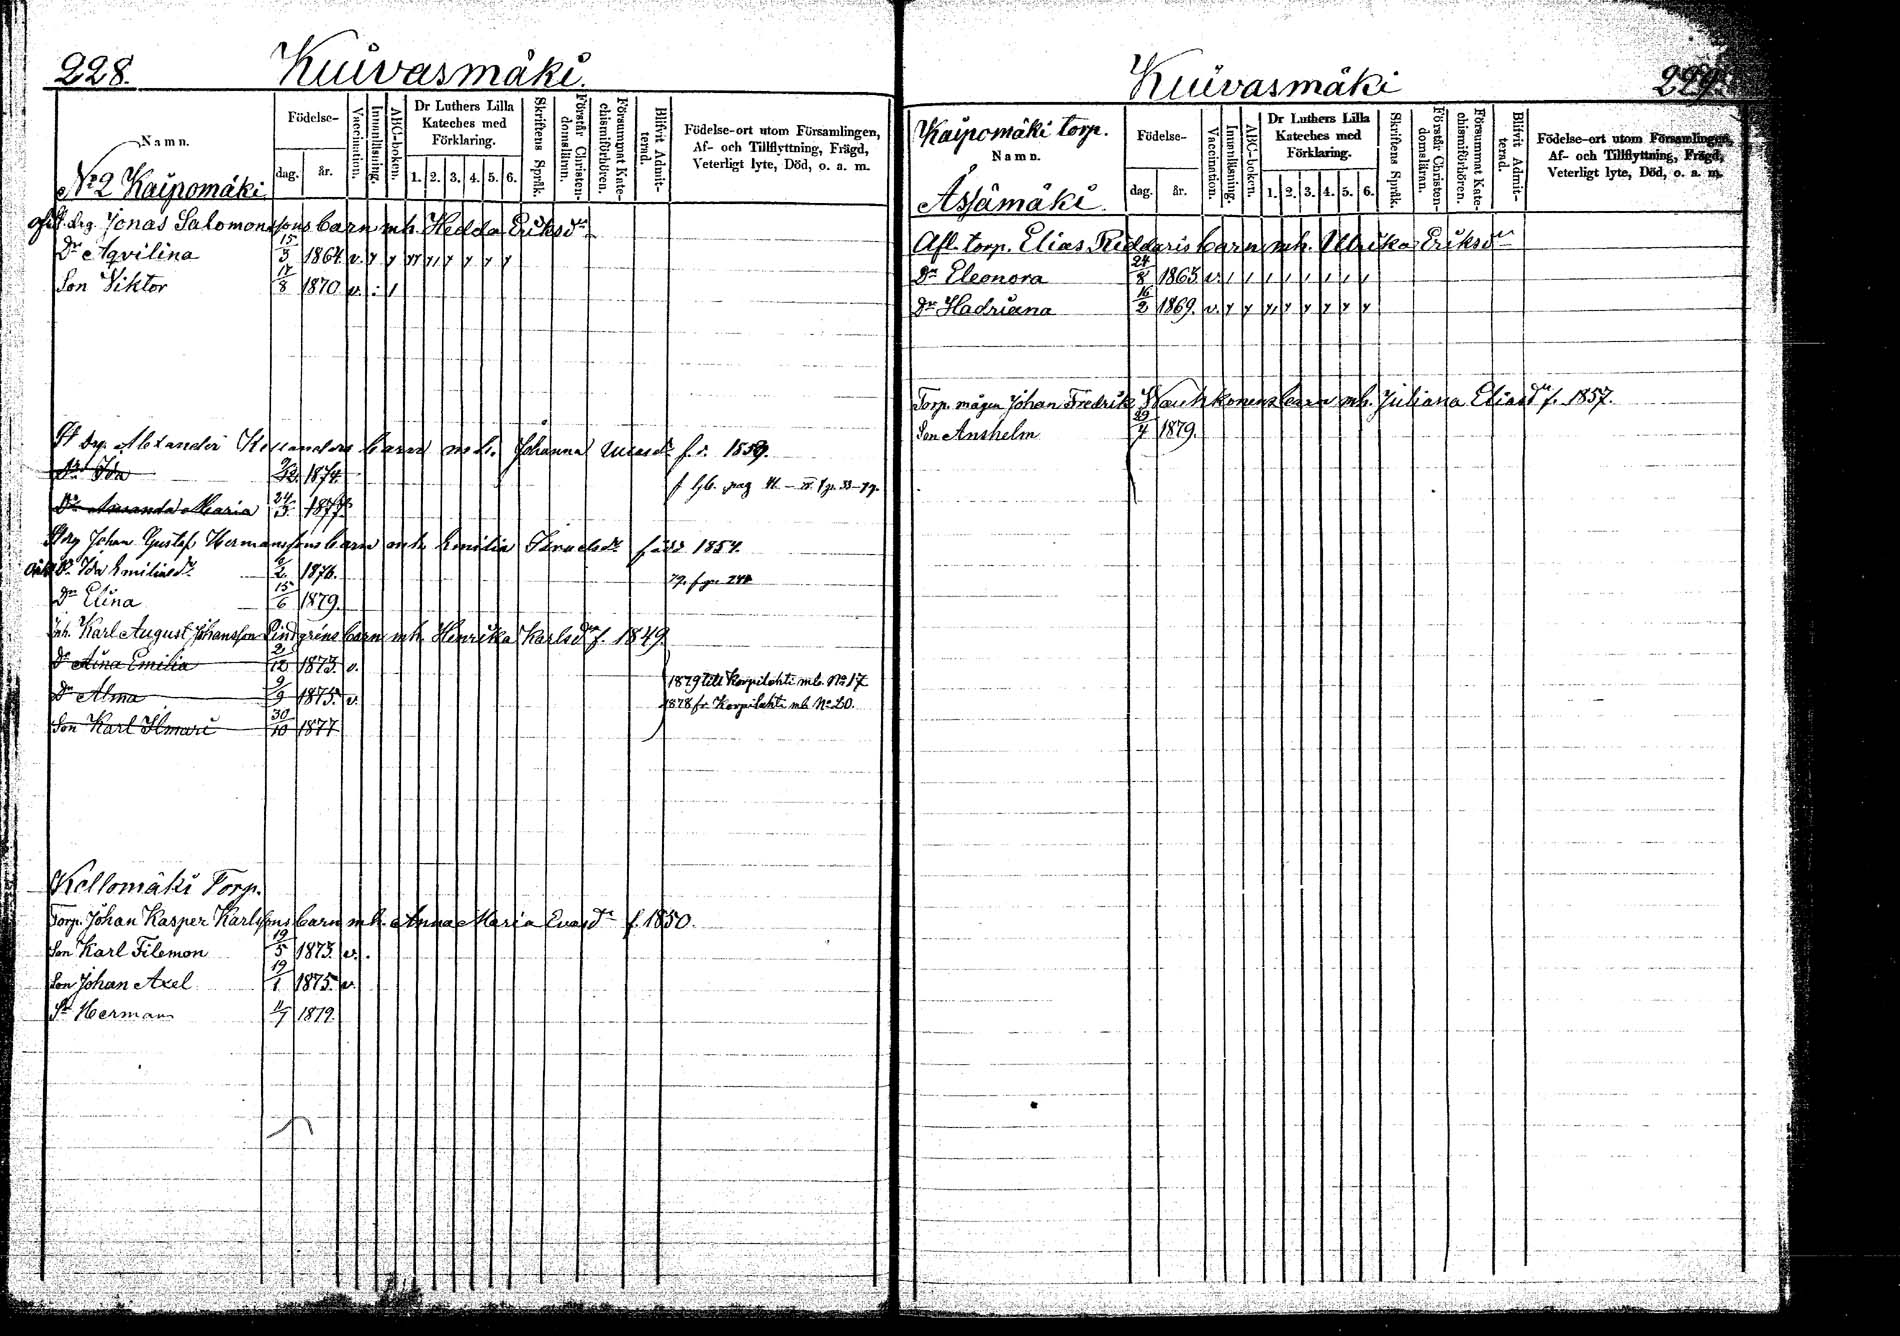 228.
Kuivasmäki.
Namn.
Födelse-
dag.
år.
Vaccination.
Innanläsning.
ABC-boken.
Dr Luthers Lilla
Kateches med
Förklaring.
1. 2. 3. 4. 5. 6.
Skriftens Språk.
Förstår Christen-
domslänn.
Försummat Kate-
chismiförhören.
Blifvit Admit-
terad.
Födelse-ort utom Församlingen,
Af- och Tillflyttning, Frägd,
Veterligt lyte, Död, o. a. m.
No 2 Kaipomäki
drg. Jonas Salomonssons barn mh. Hedda Eriksdr
Dr Aqvilina 15/3 1864. v. y y y y y y y y
Son Viktor 17/8 1870 v. : 1
drg. Alexander barn mh. Johanna f. 1859.
Dr Ida 9/12 1874.
Dr Amanda Maria 24/3 1877.
drg Johan Gustaf Hermanssons barn mh. Emilia född 1854.
Dr Ida Emiliasdr 6/2 1876.
Dr Elina 15/6 1879.
Inh. Karl August Johansson Lindgrens barn mh. Henrika Karlsdr f. 1849.
Dr Aina Emilia 2/12 1873. v.
1879 till Korpilahti mb. No 17
Dr Alma 9/9 1875. v.
1878 fr. Korpilahti mb No 20.
Son Karl Ilmari 30/10 1877
Kellomäki Torp.
Torp. Johan Kasper Karlssons barn mh. Anna Maria Evasdr f. 1850.
Son Karl Filemon 19/5 1873. v.
Son Johan Axel 19/1 1875. v.
Sn Herman 11/7 1879.
Kuivasmäki
229.
Kaipomäki torp.
Namn.
Assämäki.
Födelse-
dag.
år.
Vaccination.
Innanläsning.
ABC-boken.
Dr Luthers Lilla
Kateches med
Förklaring.
1. 2. 3. 4. 5. 6.
Skriftens Språk.
Förstår Christen-
domsläran.
Försummat Kate-
chismiförhören.
Blifvit Admit-
terad.
Födelse-ort utom Församlingen,
Af- och Tillflyttning, Frägd,
Veterligt lyte, Död, o. a. m.
Afl. torp. Elias Riddaris barn mh. Ulrika Eriksdr
Dr Eleonora 24/8 1863 v. 1 1 1 1 1 1 1 1
Dr Hadriana 16/2 1869. v. y y y y y y y y
Torp. mågen Johan Fredrik Wauhkonens barn mh. Juliana Eliasdr f. 1857.
Son Anshelm 29/4 1879.